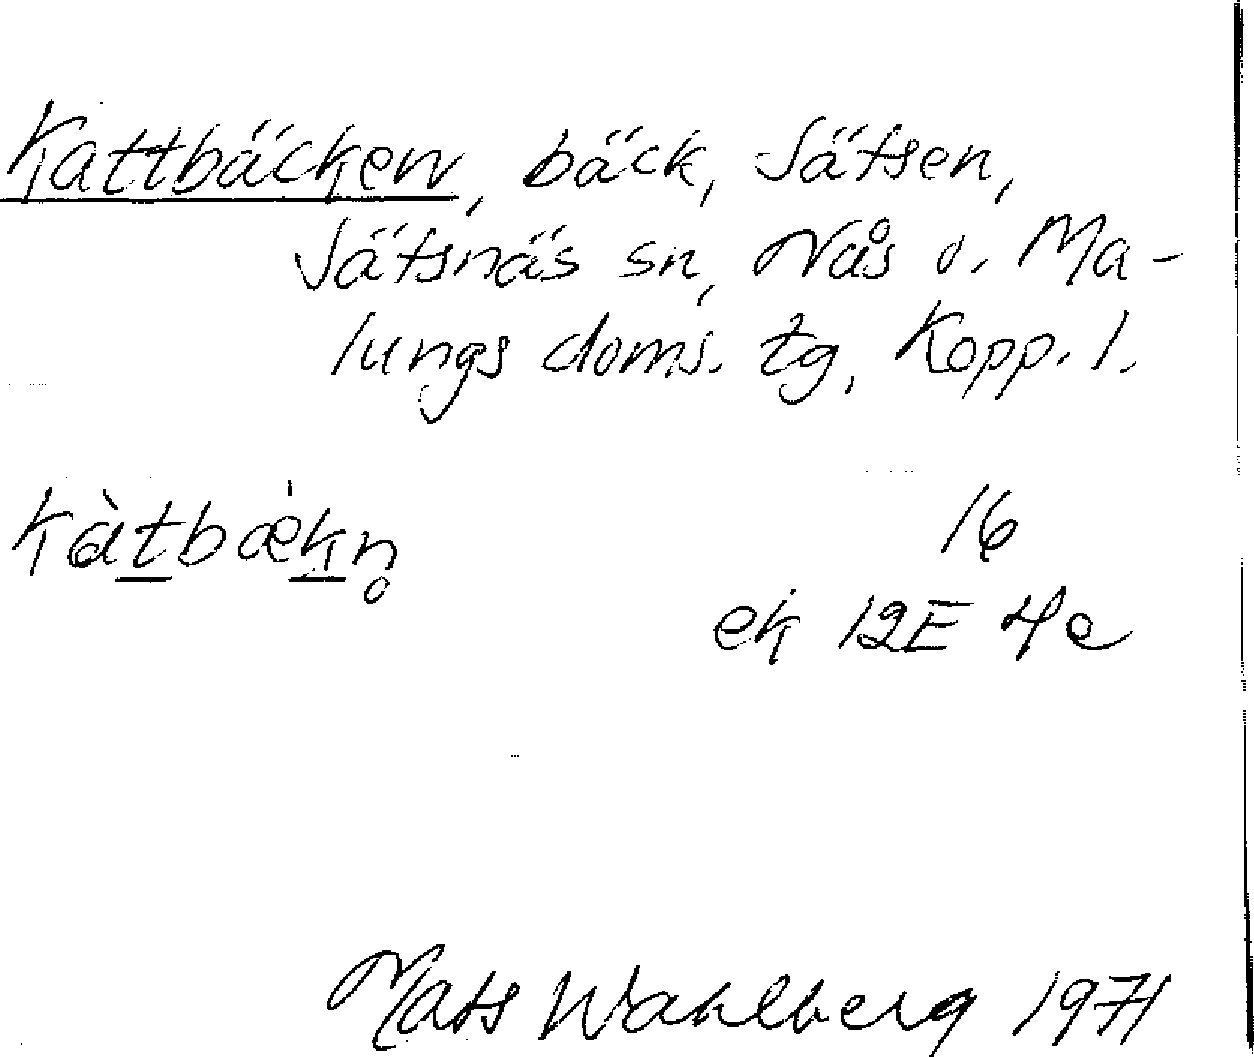 Kattbäcken, bäck, Säfsen,
Säfsnäs sn, Nås o. Ma-
lungs doms. tg, Kopp. l.
kàt̲bæ̍k̲n̥ 16
ek 12E 4e
Mats Wahlberg 1971